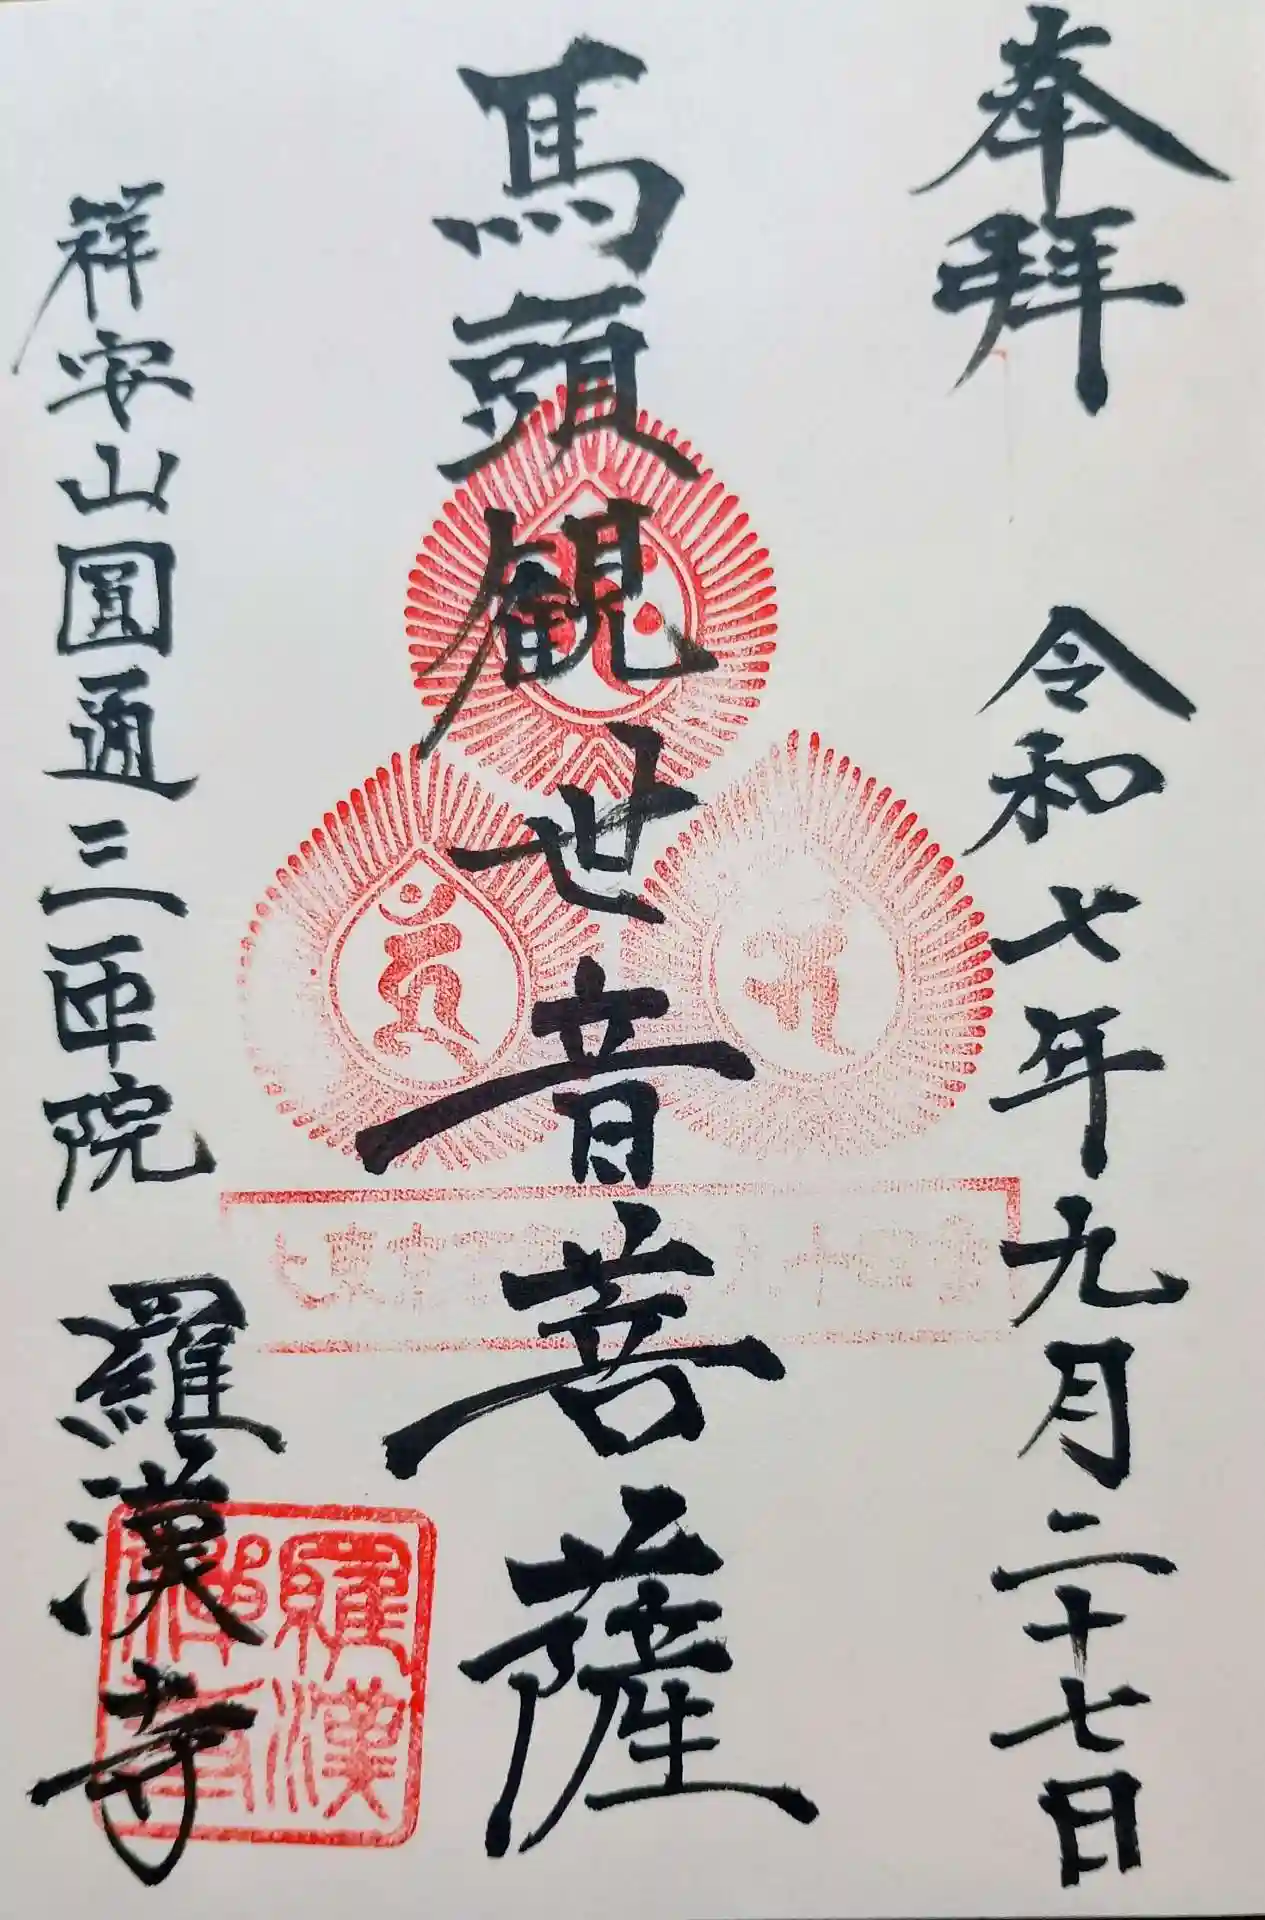 奉拜 令和七年九月二十七日
馬頭觀世音菩薩
祥安山圓通三匝院 羅漢寺
羅漢禅寺